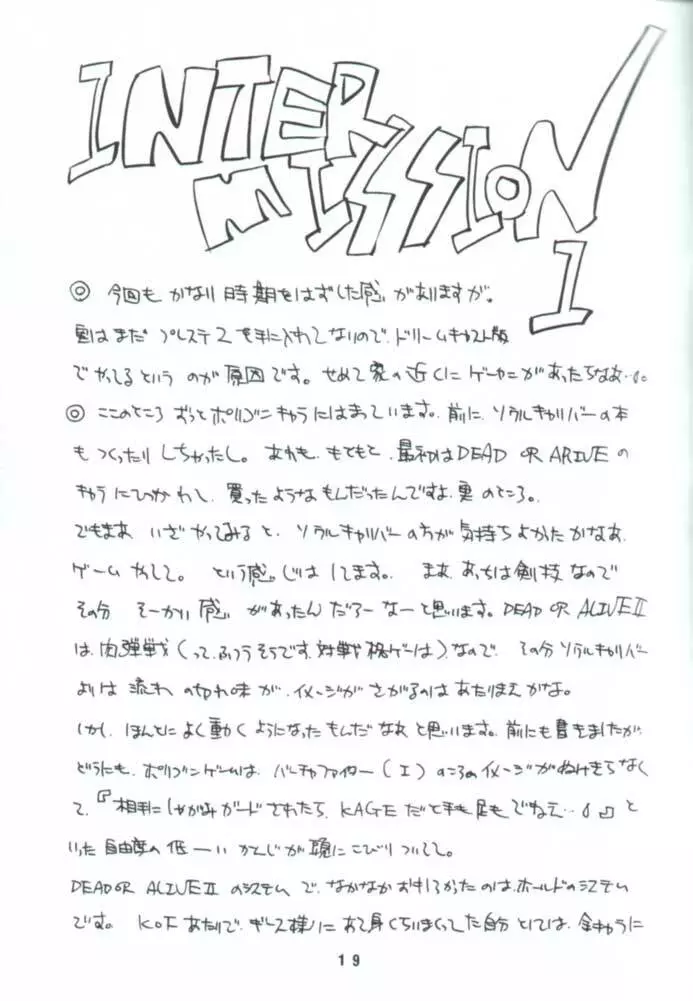 INTER
MISSION
I
◎ 今回も かなり時期をはずした感じがありますが。
実はまだ プレステ2を手に入れてないので、ドリームキャスト版
でやってるという のが原因です。せめて家の近くにゲーセンがあったらなあ…。
◎ ここのところ ずっとポリゴンキャラにはまっています。前に、ソウルキャリバーの本
も つくったり しちゃったし。あれも、もともと、最初はDEAD OR ARIVE の
キャラにひかれて、買ったようなもんだったんですよ、実のところ。
でもまあ いざ やってみると、ソウルキャリバーの方が気持ちよかったかなあ、
ゲームやってて。 という感じはしてます。 まあ、あっちは剣技なので
その分 そーかい感が あったんだろーなーと思います。DEAD OR ALIVEⅡ
は、肉弾戦(って、ふつうそうです、対戦格ゲーは)、なので、その分ソウルキャリバー
よりは 流れ の切れ味が、イメージが さがるのは あたりまえかな。
しかし、ほんとによく動くようになったもんだなあと思います。前にも書きましたが、
どうにも、ポリゴンゲームは、バーチャファイター(I)のころのイメージがぬけきらなく
て、『相手にしゃがみガードされたら、KAGEだと手も足もでねえ…』と
いった自由度の低ーいかんじが頭にこびりついてて。
DEAD OR ALIVEⅡのシステムで、なかなかおもしろかったのは、ホールドのシステム
です。 KOFあたりで、ギース様に あて身くらいまくってた自分としては、全キャラに
19